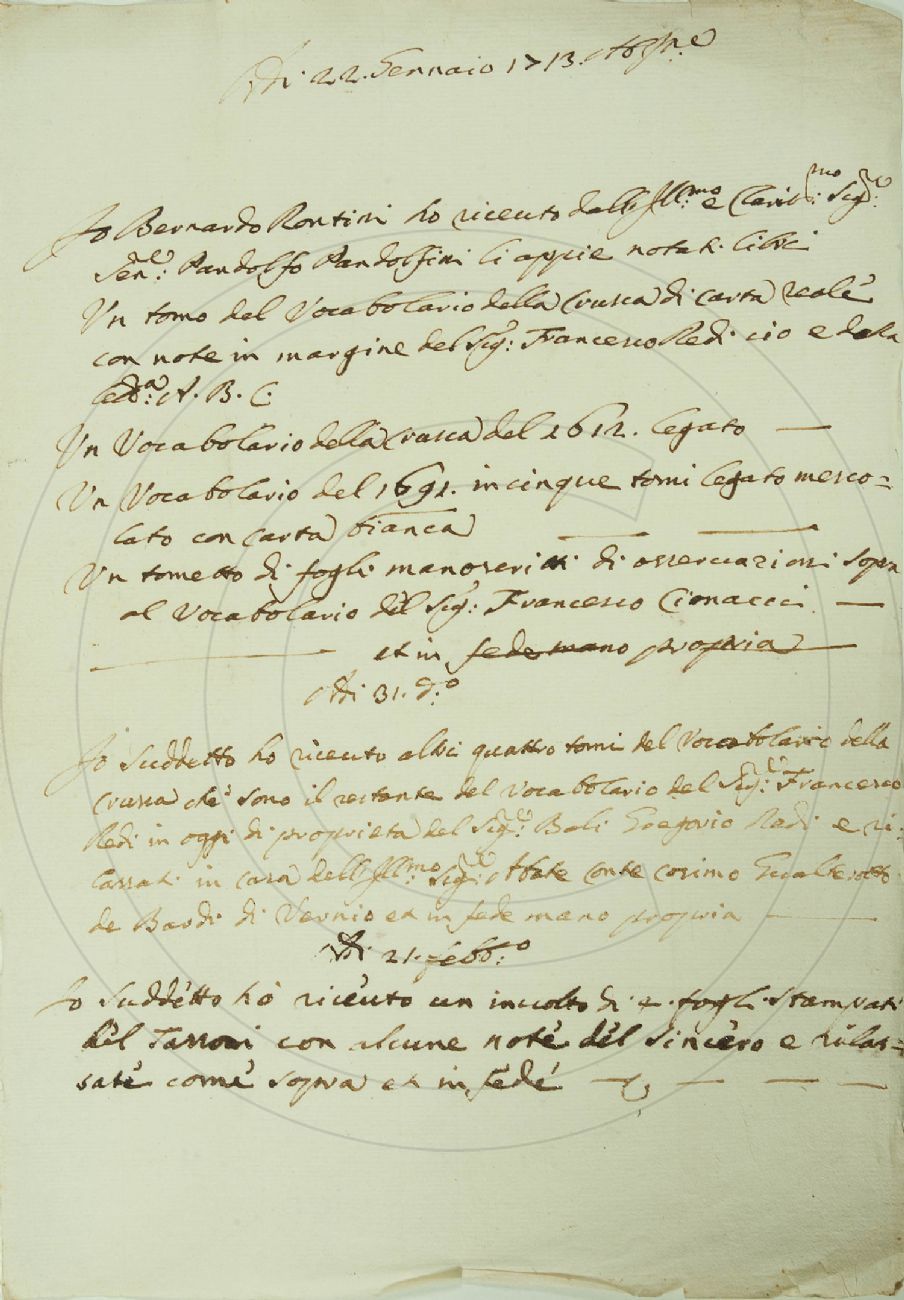 Adi 22. Gennaio 1713. Ab Jn.e
Io Bernardo Rontini ho riceuto dall Ill:mo e Clariss:mo Sig:re
Sen:re Pandolfo Pandolfini li appie notati libri
Un tomo del Vocabolario della Crusca di carta reale
con note in margine del Sig:re Francesco Redi cio e della
led:a A. B. C.
Un Vocabolario della Crusca del 1612. legato —
Un Vocabolario del 1691. in cinque tomi legato mesco=
lato con carta bianca — —
Un tometto di fogli manoscritti di osseruazioni sopra
al Vocabolario del Sig:re Francesco Cionacci —
— et in fede mano propria —
Adi 31. d:o
Io Suddetto ho riceuto altri quattro tomi del Vocabolario della
Crusca che sono il restante del Vocabolario del Sig:re Francesco
Redi in oggi di proprieta del Sig:re Bali Gregorio Redi e ri-
lassati in casa dell Ill:mo Sig:re Abate Conte Cosimo Gualterotto
de Bardi di Vernio et in fede mano propria —
Adi 21. febb:o
Io Suddetto ho riceuto un inuolto di fogli stampati
del Tassoni con alcune note del Sincero e rilas=
sate come sopra et in fede — — — —